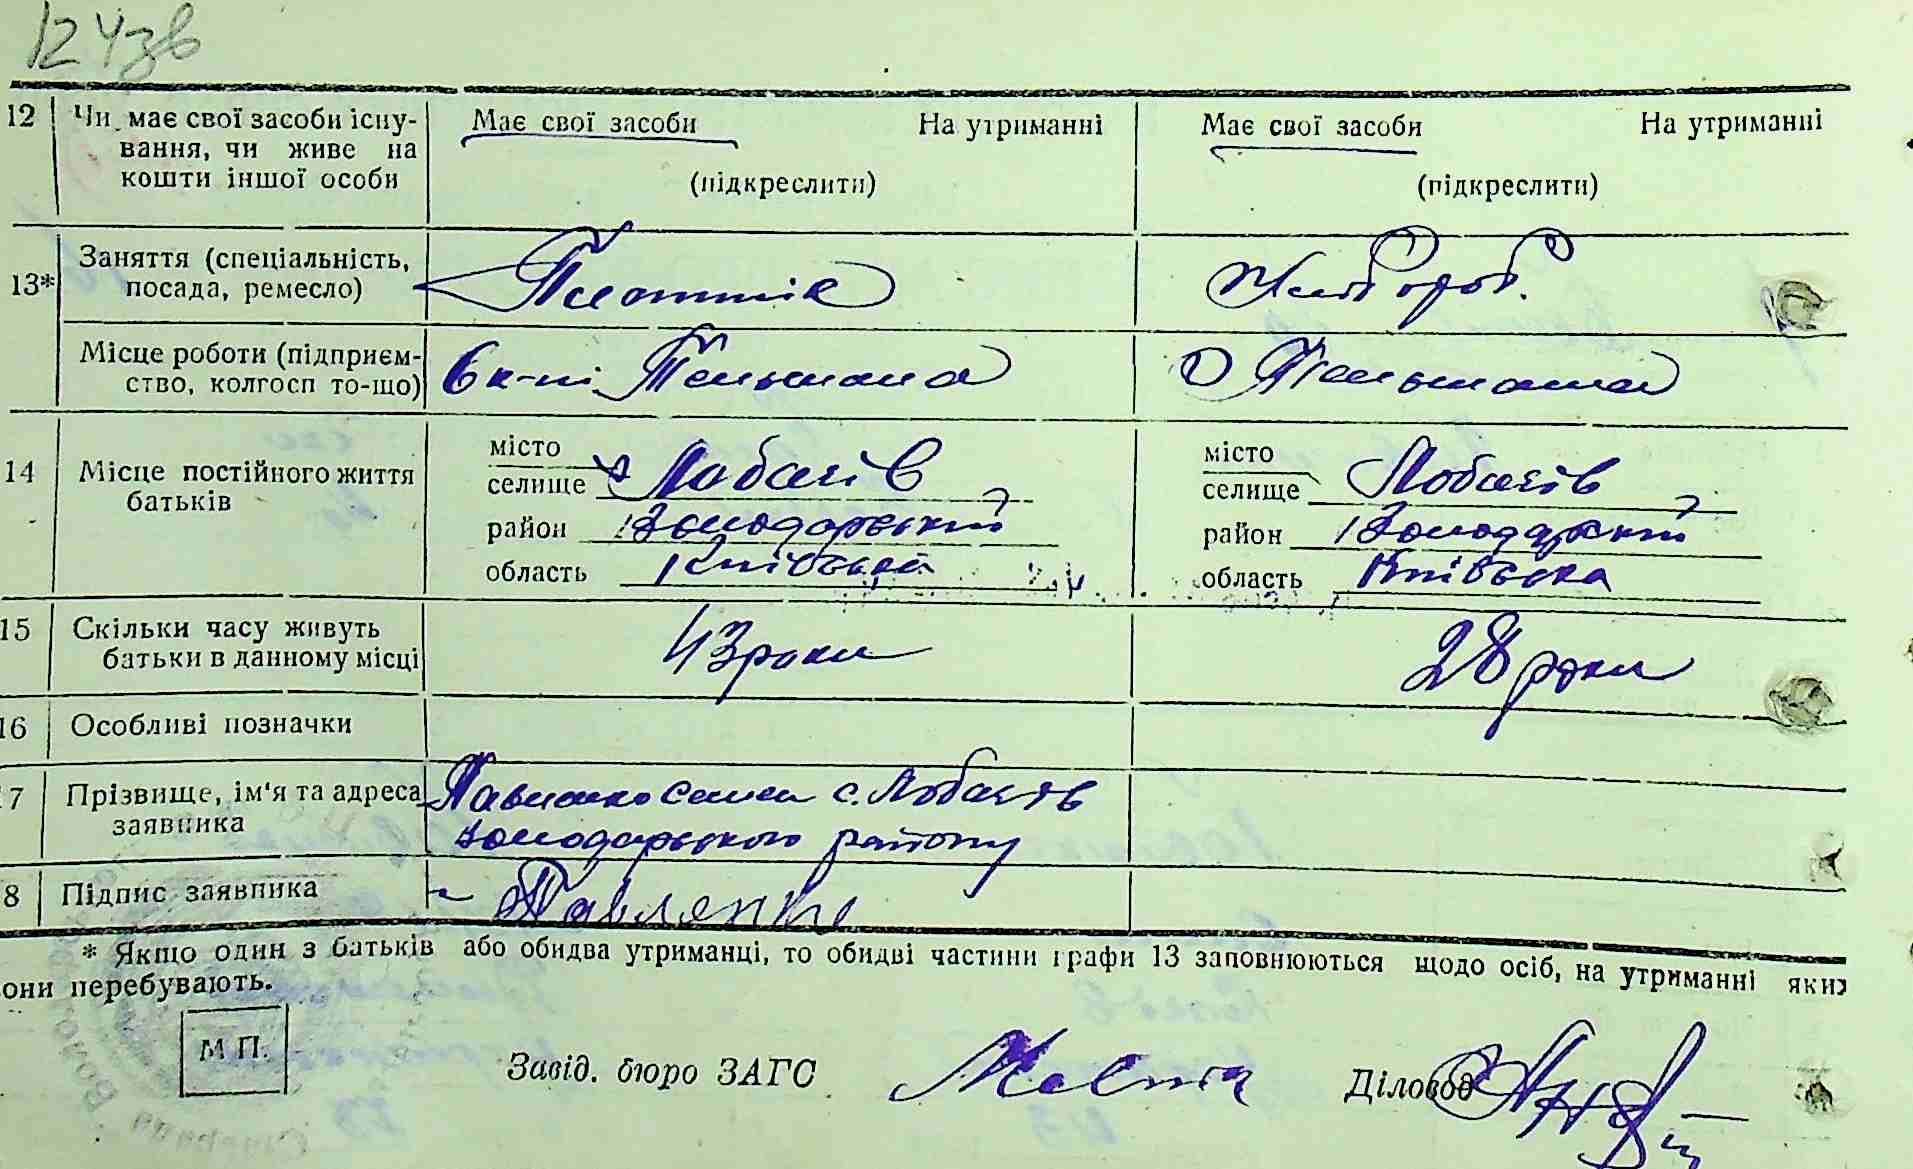 124зв
12 Чи має свої засоби існування, чи живе на кошти іншої особи
Має свої засоби На утриманні
(підкреслити)
Має свої засоби На утриманні
(підкреслити)
13* Заняття (спеціальність,
посада, ремесло)
Плотнік
Хлібороб.
Місце роботи (підприєм-
ство, колгосп то-що)
Тельмана
Тельмана
14 Місце постійного життя
батьків
місто
селище Лобачів
район Володарський
область Київська
місто
селище Лобачів
район Володарський
область Київська
15 Скільки часу живуть
батьки в данному місці
43 роки
28 роки
16 Особливі позначки
7 Прізвище, ім'я та адреса
заявника
с. Лобачів
Володарського району
8 Підпис заявника
Павленко
* Якщо один з батьків або обидва утриманці, то обидві частини графи 13 заповнюються щодо осіб, на утриманні яких
они перебувають.
М П.
Завід. бюро ЗАГС
Діловод